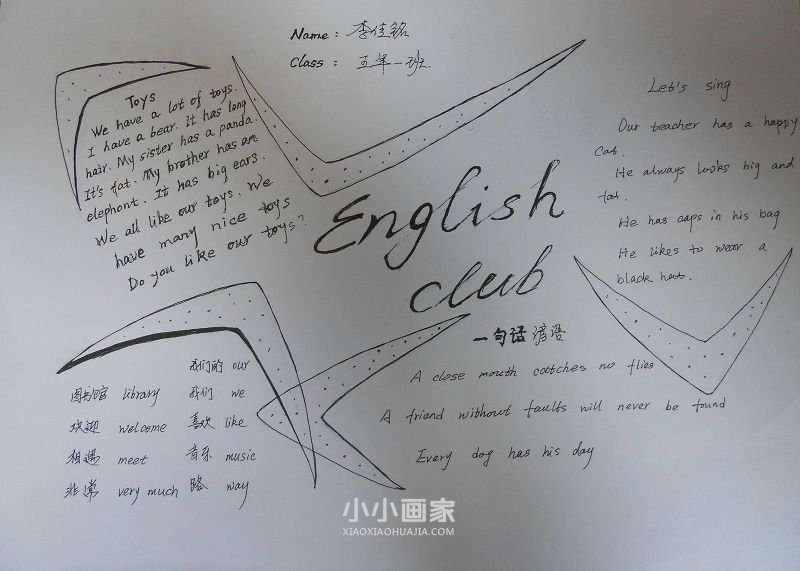 Name : 李佳铭
Class : 五年一班.
Toys
We have a lot of toys.
I have a bear. It has long
hair. My sister has a panda.
It's fat. My brother has an
elephant. It has big ears.
We all like our toys. We
have many nice toys
Do you like our toys?
English
club
Let's sing
Our teacher has a happy
Cat.
He always looks big and
fat.
He has caps in his bag
He likes to wear a
black hat.
一句话谚语
A close mouth catches no flies
A friend without faults will never be found
Every dog has his day
我们的 our
图书馆 library 我们 we
欢迎 welcome 喜欢 like
相遇 meet 音乐 music
非常 very much 路 way
小小画家
XIAOXIAOHUAJIA.COM